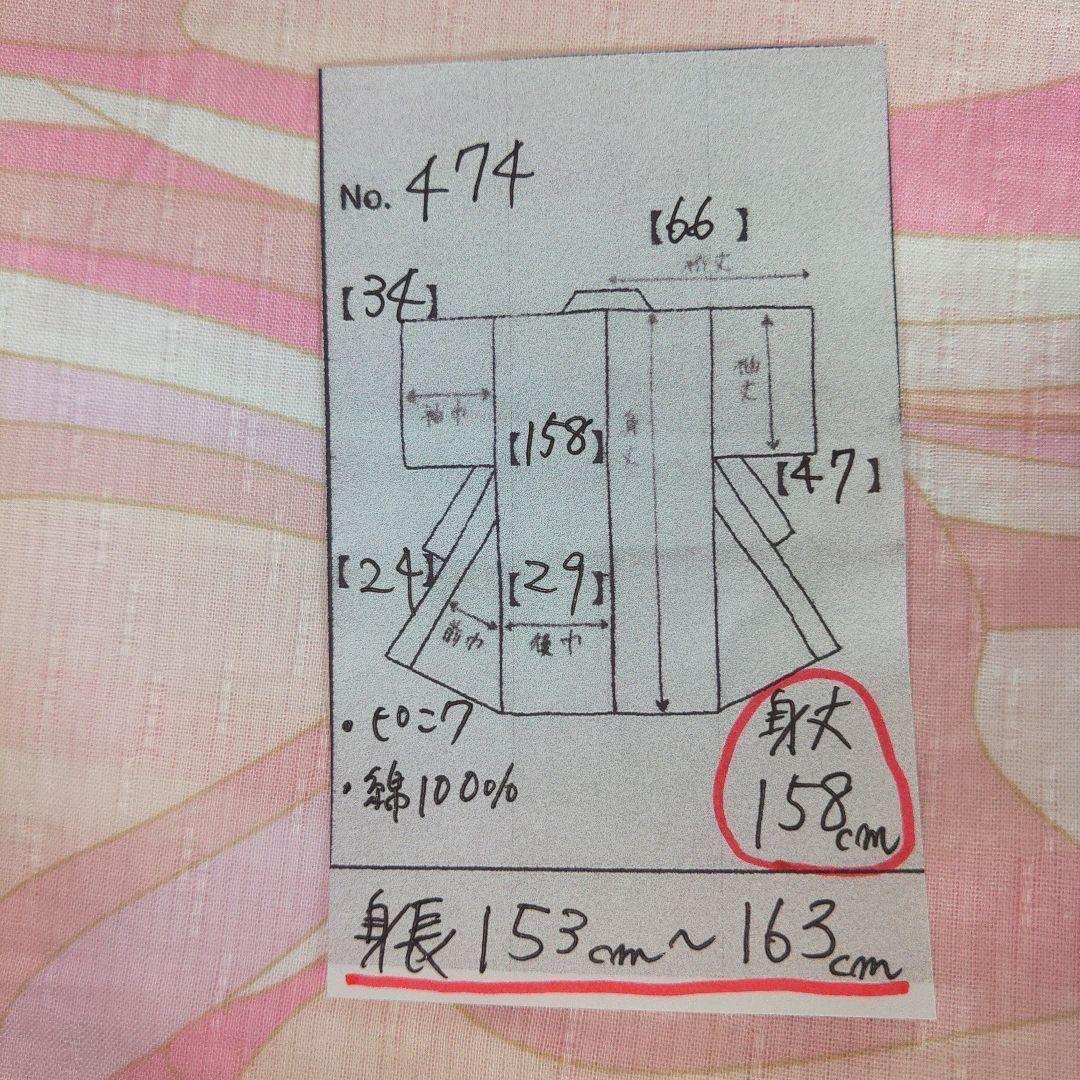 No. 474
【66】
裄丈
【34】
袖巾
袖丈
【158】
身丈
【47】
【24】
【29】
前巾
後巾
・ピロニワ
・綿100%
身丈
158cm
身長153cm～163cm